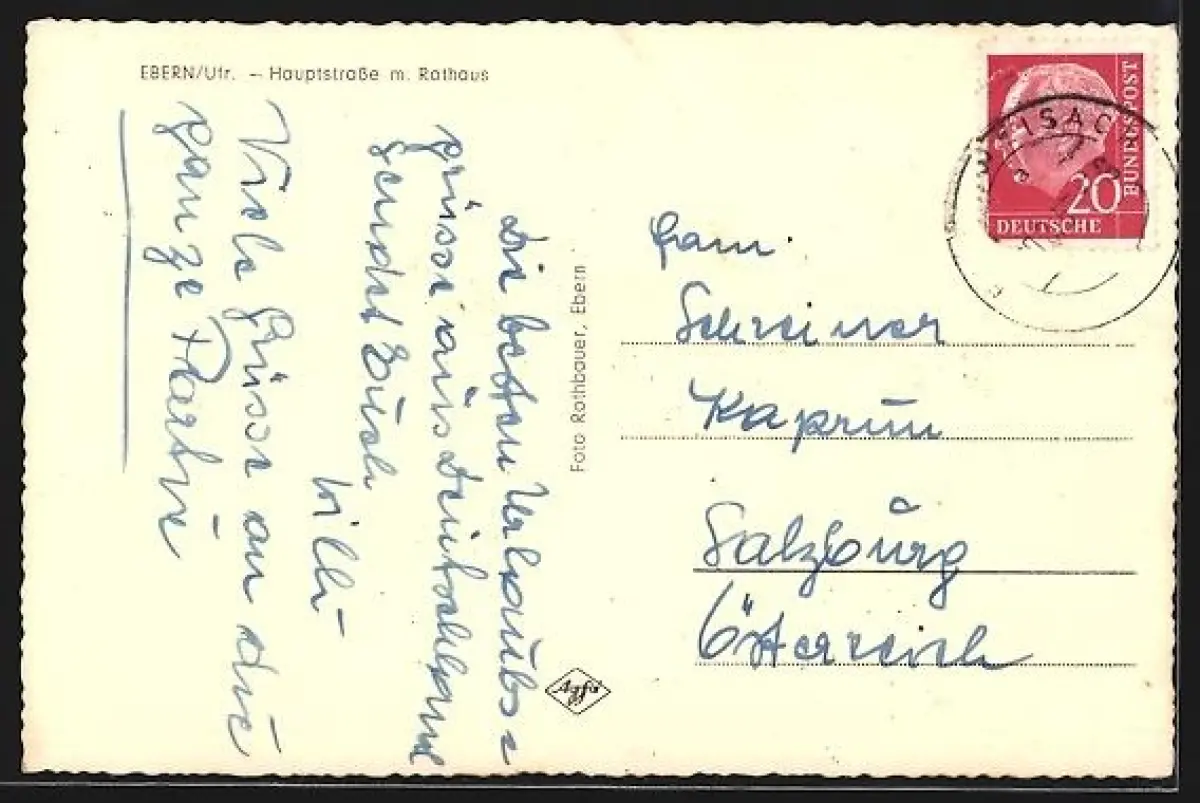 EBERN/Ufr. – Hauptstraße m. Rathaus
Die besten Urlaubs=
grüsse aus Deutschland
sendet Euch
Willi
Viele Grüsse an die
ganze Partie
Foto Rathbauer, Ebern
Agfa
DEUTSCHE
BUNDESPOST
20
Fam.
Schreiner
Kaprun
Salzburg
Österreich